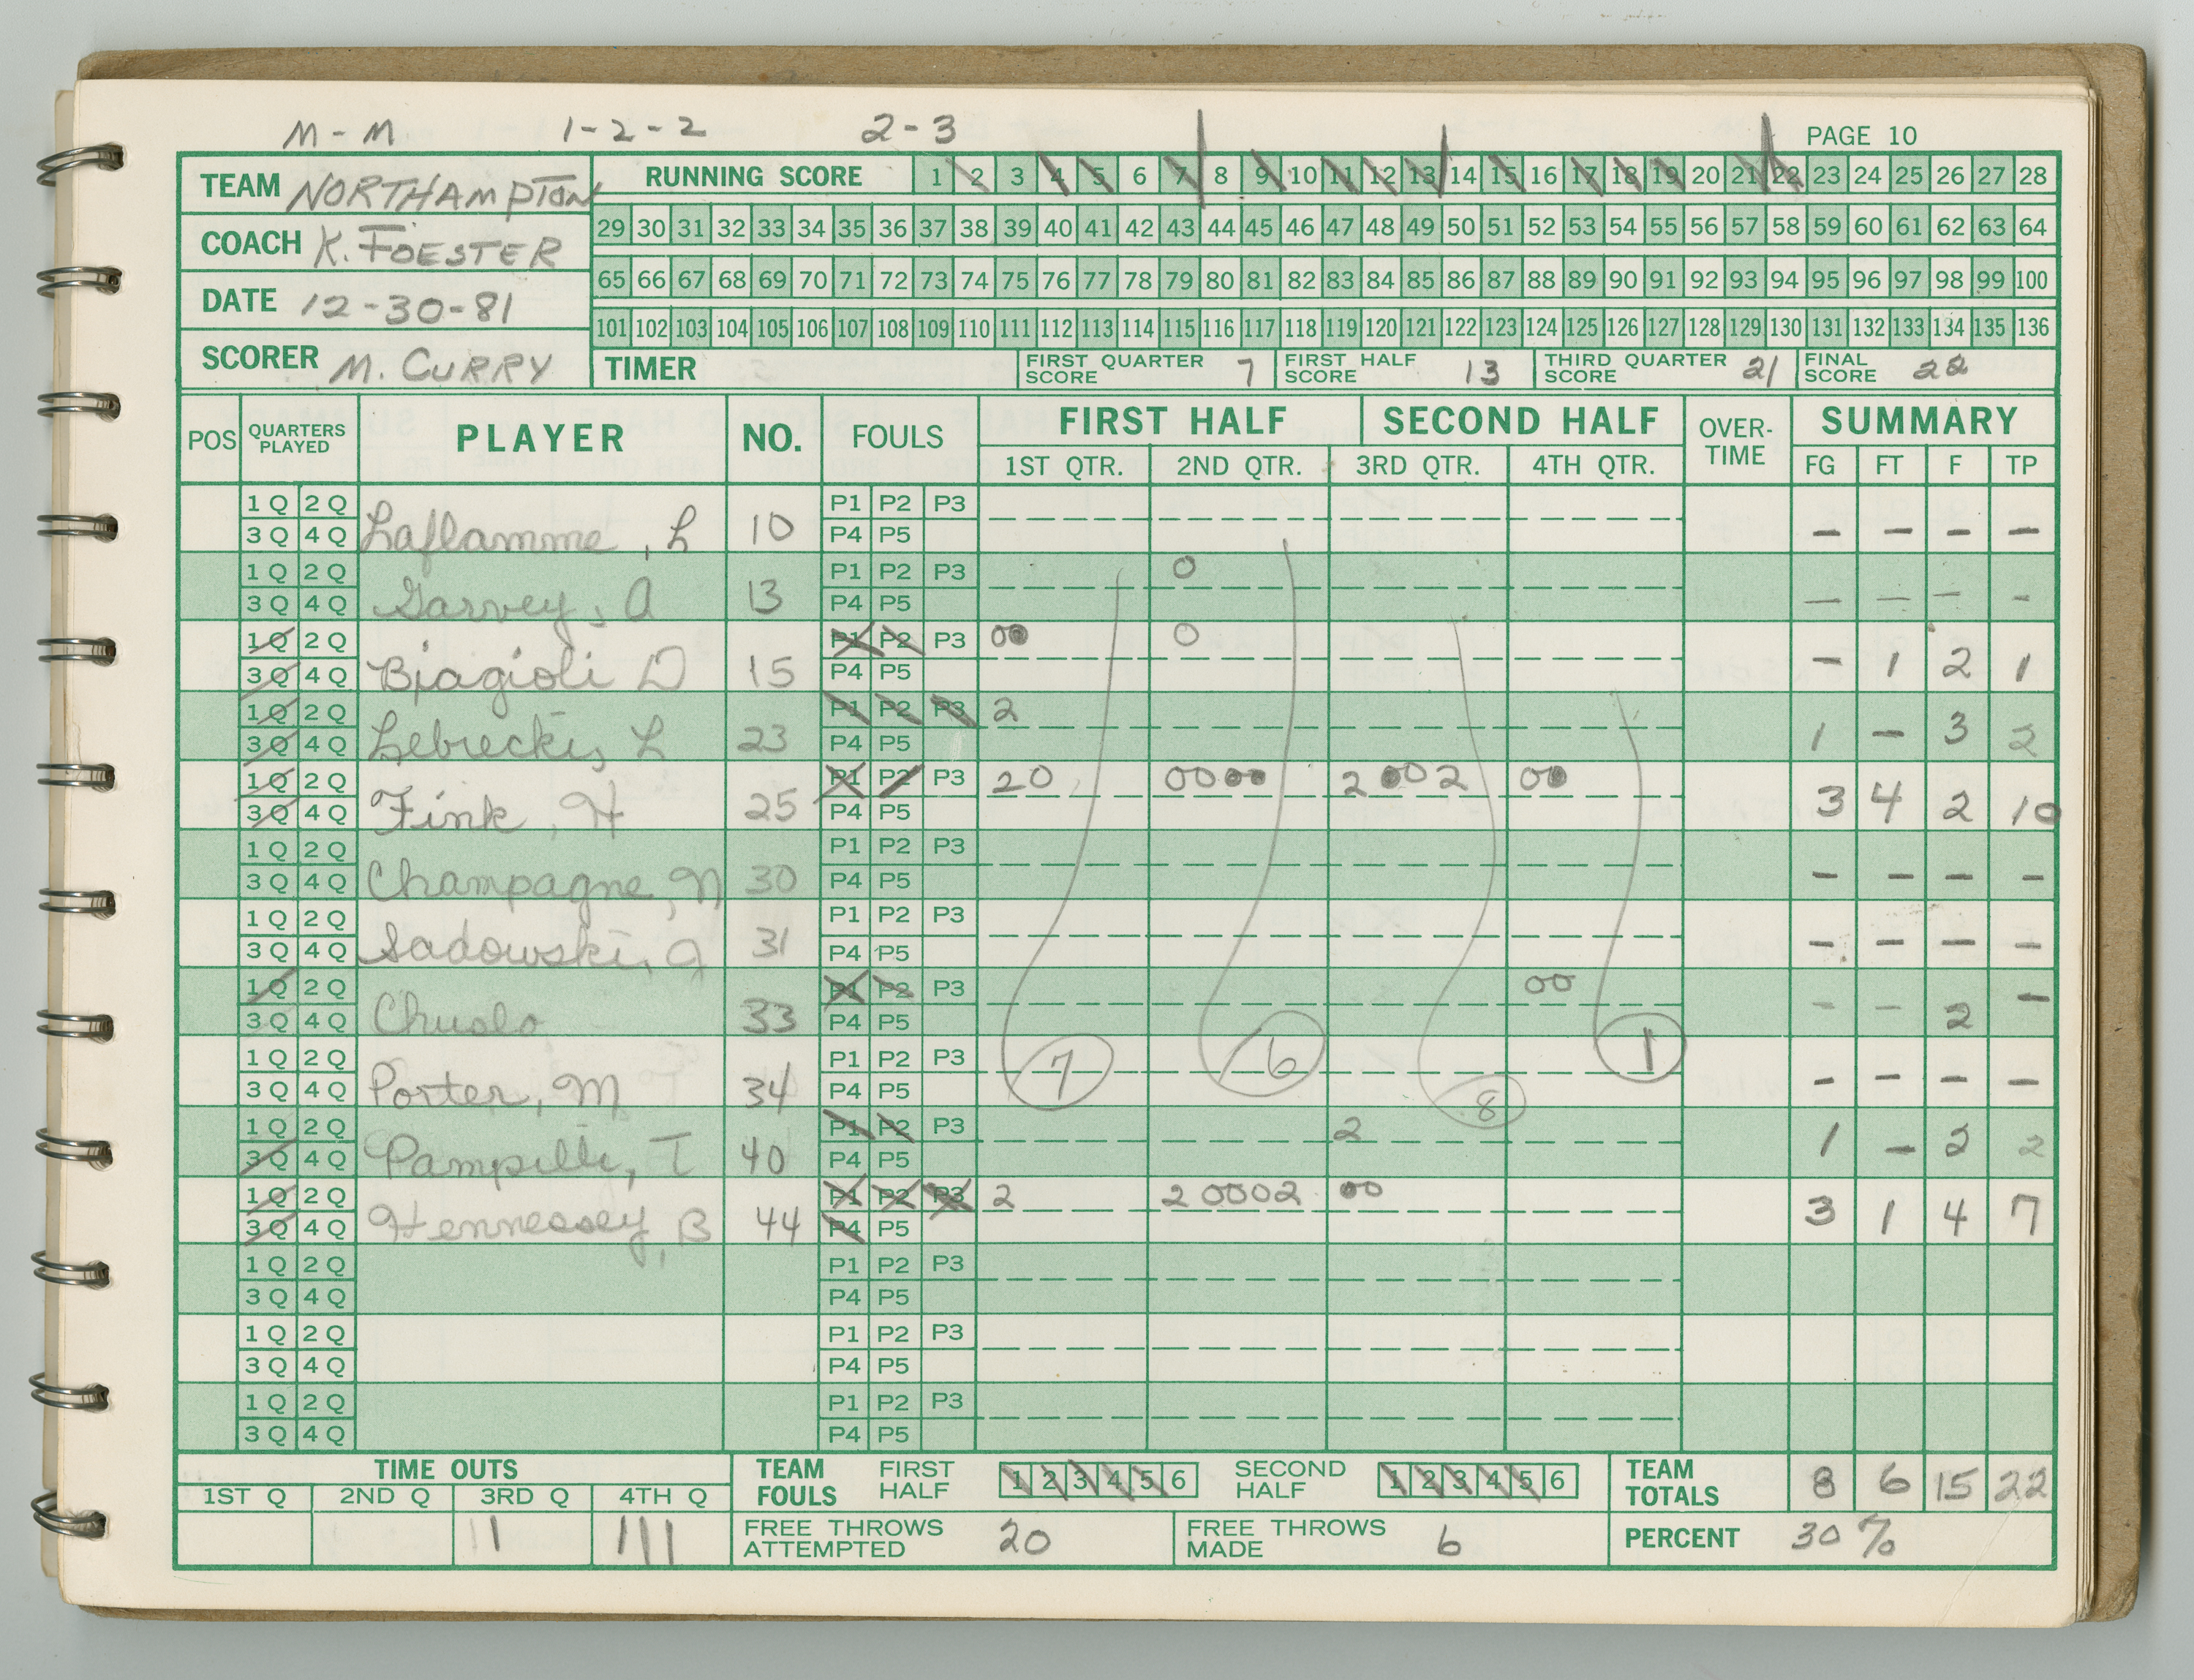 M-M 1-2-2 2-3 PAGE 10
TEAM NORTHAMPTON
COACH K. FOESTER
DATE 12-30-81
SCORER M. CURRY
RUNNING SCORE 1 2 3 4 5 6 7 8 9 10 11 12 13 14 15 16 17 18 19 20 21 22 23 24 25 26 27 28
29 30 31 32 33 34 35 36 37 38 39 40 41 42 43 44 45 46 47 48 49 50 51 52 53 54 55 56 57 58 59 60 61 62 63 64
65 66 67 68 69 70 71 72 73 74 75 76 77 78 79 80 81 82 83 84 85 86 87 88 89 90 91 92 93 94 95 96 97 98 99 100
101 102 103 104 105 106 107 108 109 110 111 112 113 114 115 116 117 118 119 120 121 122 123 124 125 126 127 128 129 130 131 132 133 134 135 136
TIMER FIRST QUARTER SCORE 7 FIRST HALF SCORE 13 THIRD QUARTER SCORE 21 FINAL SCORE 22
POS QUARTERS PLAYED PLAYER NO. FOULS FIRST HALF SECOND HALF OVER-TIME SUMMARY
1ST QTR. 2ND QTR. 3RD QTR. 4TH QTR. FG FT F TP
1Q 2Q P1 P2 P3
3Q 4Q Laflamme, L 10 P4 P5 - - - -
1Q 2Q P1 P2 P3 0
3Q 4Q Garvey, A 13 P4 P5 - - - -
1Q 2Q P1 P2 P3 00 0
3Q 4Q Biagioli D 15 P4 P5 - 1 2 1
1Q 2Q P1 P2 P3 2
3Q 4Q Lebrecki, L 23 P4 P5 1 - 3 2
1Q 2Q P1 P2 P3 20 0000 2002 00
3Q 4Q Fink, H 25 P4 P5 3 4 2 10
1Q 2Q P1 P2 P3
3Q 4Q Champagne, N 30 P4 P5 - - - -
1Q 2Q P1 P2 P3
3Q 4Q Sadowski, J 31 P4 P5 - - - -
1Q 2Q P1 P2 P3 00
3Q 4Q 33 P4 P5 - - 2 -
1Q 2Q P1 P2 P3 7 6 1
3Q 4Q Porter, M 34 P4 P5 8 - - - -
1Q 2Q P1 P2 P3 2
3Q 4Q T 40 P4 P5 1 - 2 2
1Q 2Q P1 P2 P3 2 20002 00
3Q 4Q Hennessey, B 44 P4 P5 3 1 4 7
1Q 2Q P1 P2 P3
3Q 4Q P4 P5
1Q 2Q P1 P2 P3
3Q 4Q P4 P5
1Q 2Q P1 P2 P3
3Q 4Q P4 P5
TIME OUTS TEAM FOULS FIRST HALF 1 2 3 4 5 6 SECOND HALF 1 2 3 4 5 6 TEAM TOTALS 8 6 15 22
1ST Q 2ND Q 3RD Q 4TH Q
11 111 FREE THROWS ATTEMPTED 20 FREE THROWS MADE 6 PERCENT 30%